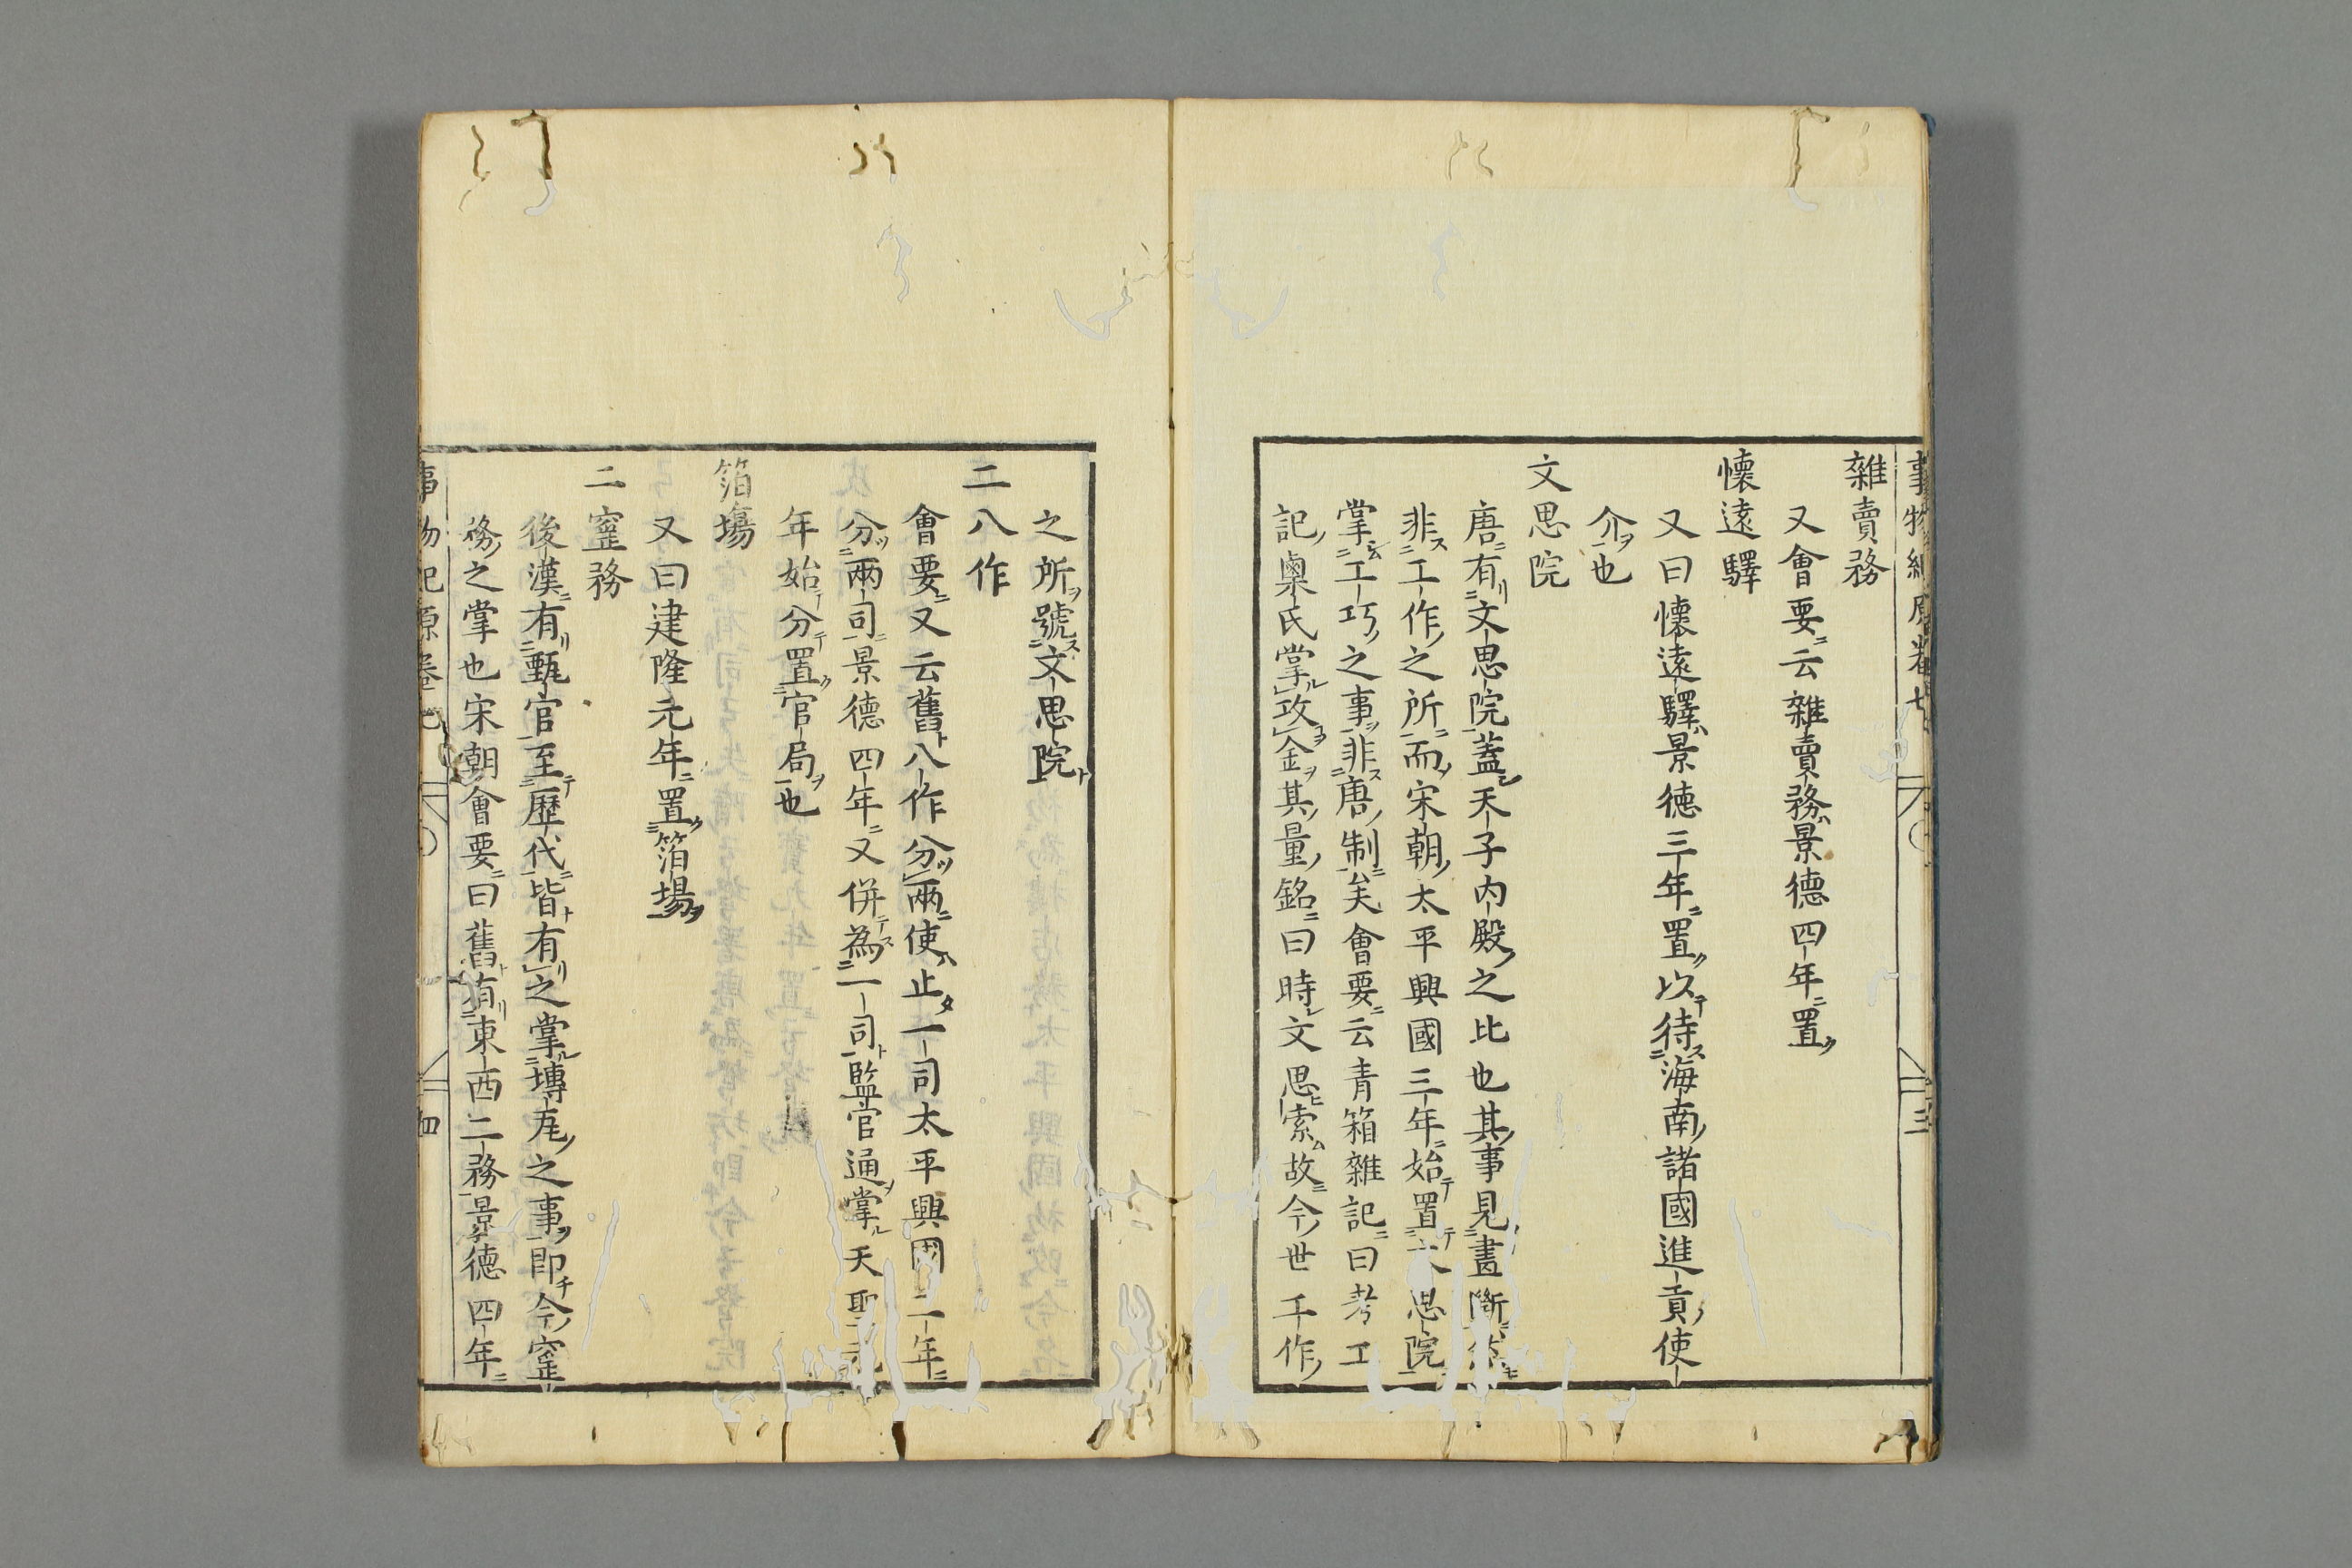 雜賣務
又會要云雜賣務景德四年置
懷遠驛
又曰懷遠驛景德三年置以待海南諸國進貢使
介也
文思院
唐有文思院蓋天子内殿之比也其事見畫斷然
非工作之所而宋朝太平興國三年始置文思院
掌工巧之事非唐制矣會要云青箱雜記曰考工
記㮚氏掌攻金其量銘曰時文思索故今世工作
之所號文思院
二八作
會要又云舊八作分兩使止一司太平興國二年
分兩司景德四年又併為一司監官通掌天聖元
年始分置官局也
箔場
又曰建隆元年置箔場
二窰務
後漢有甄官至歷代皆有之掌塼瓦之事即今窰
務之掌也宋朝會要曰舊有東西二務景德四年
事物紀原卷七
四